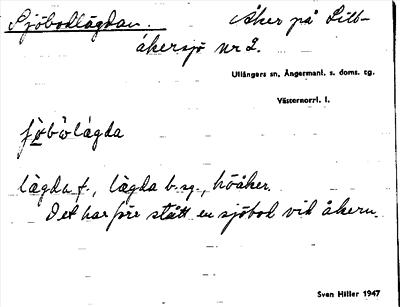 Sjöbodlägdan. Åker på Litt-
åkersjö nr 2.
Ullångers sn, Ångermanl. s. doms. tg.
Västernorrl. l.
lägda f., lägda b. sg., höåker.
Det har förr stått en sjöbod vid åkern.
Sven Hiller 1947